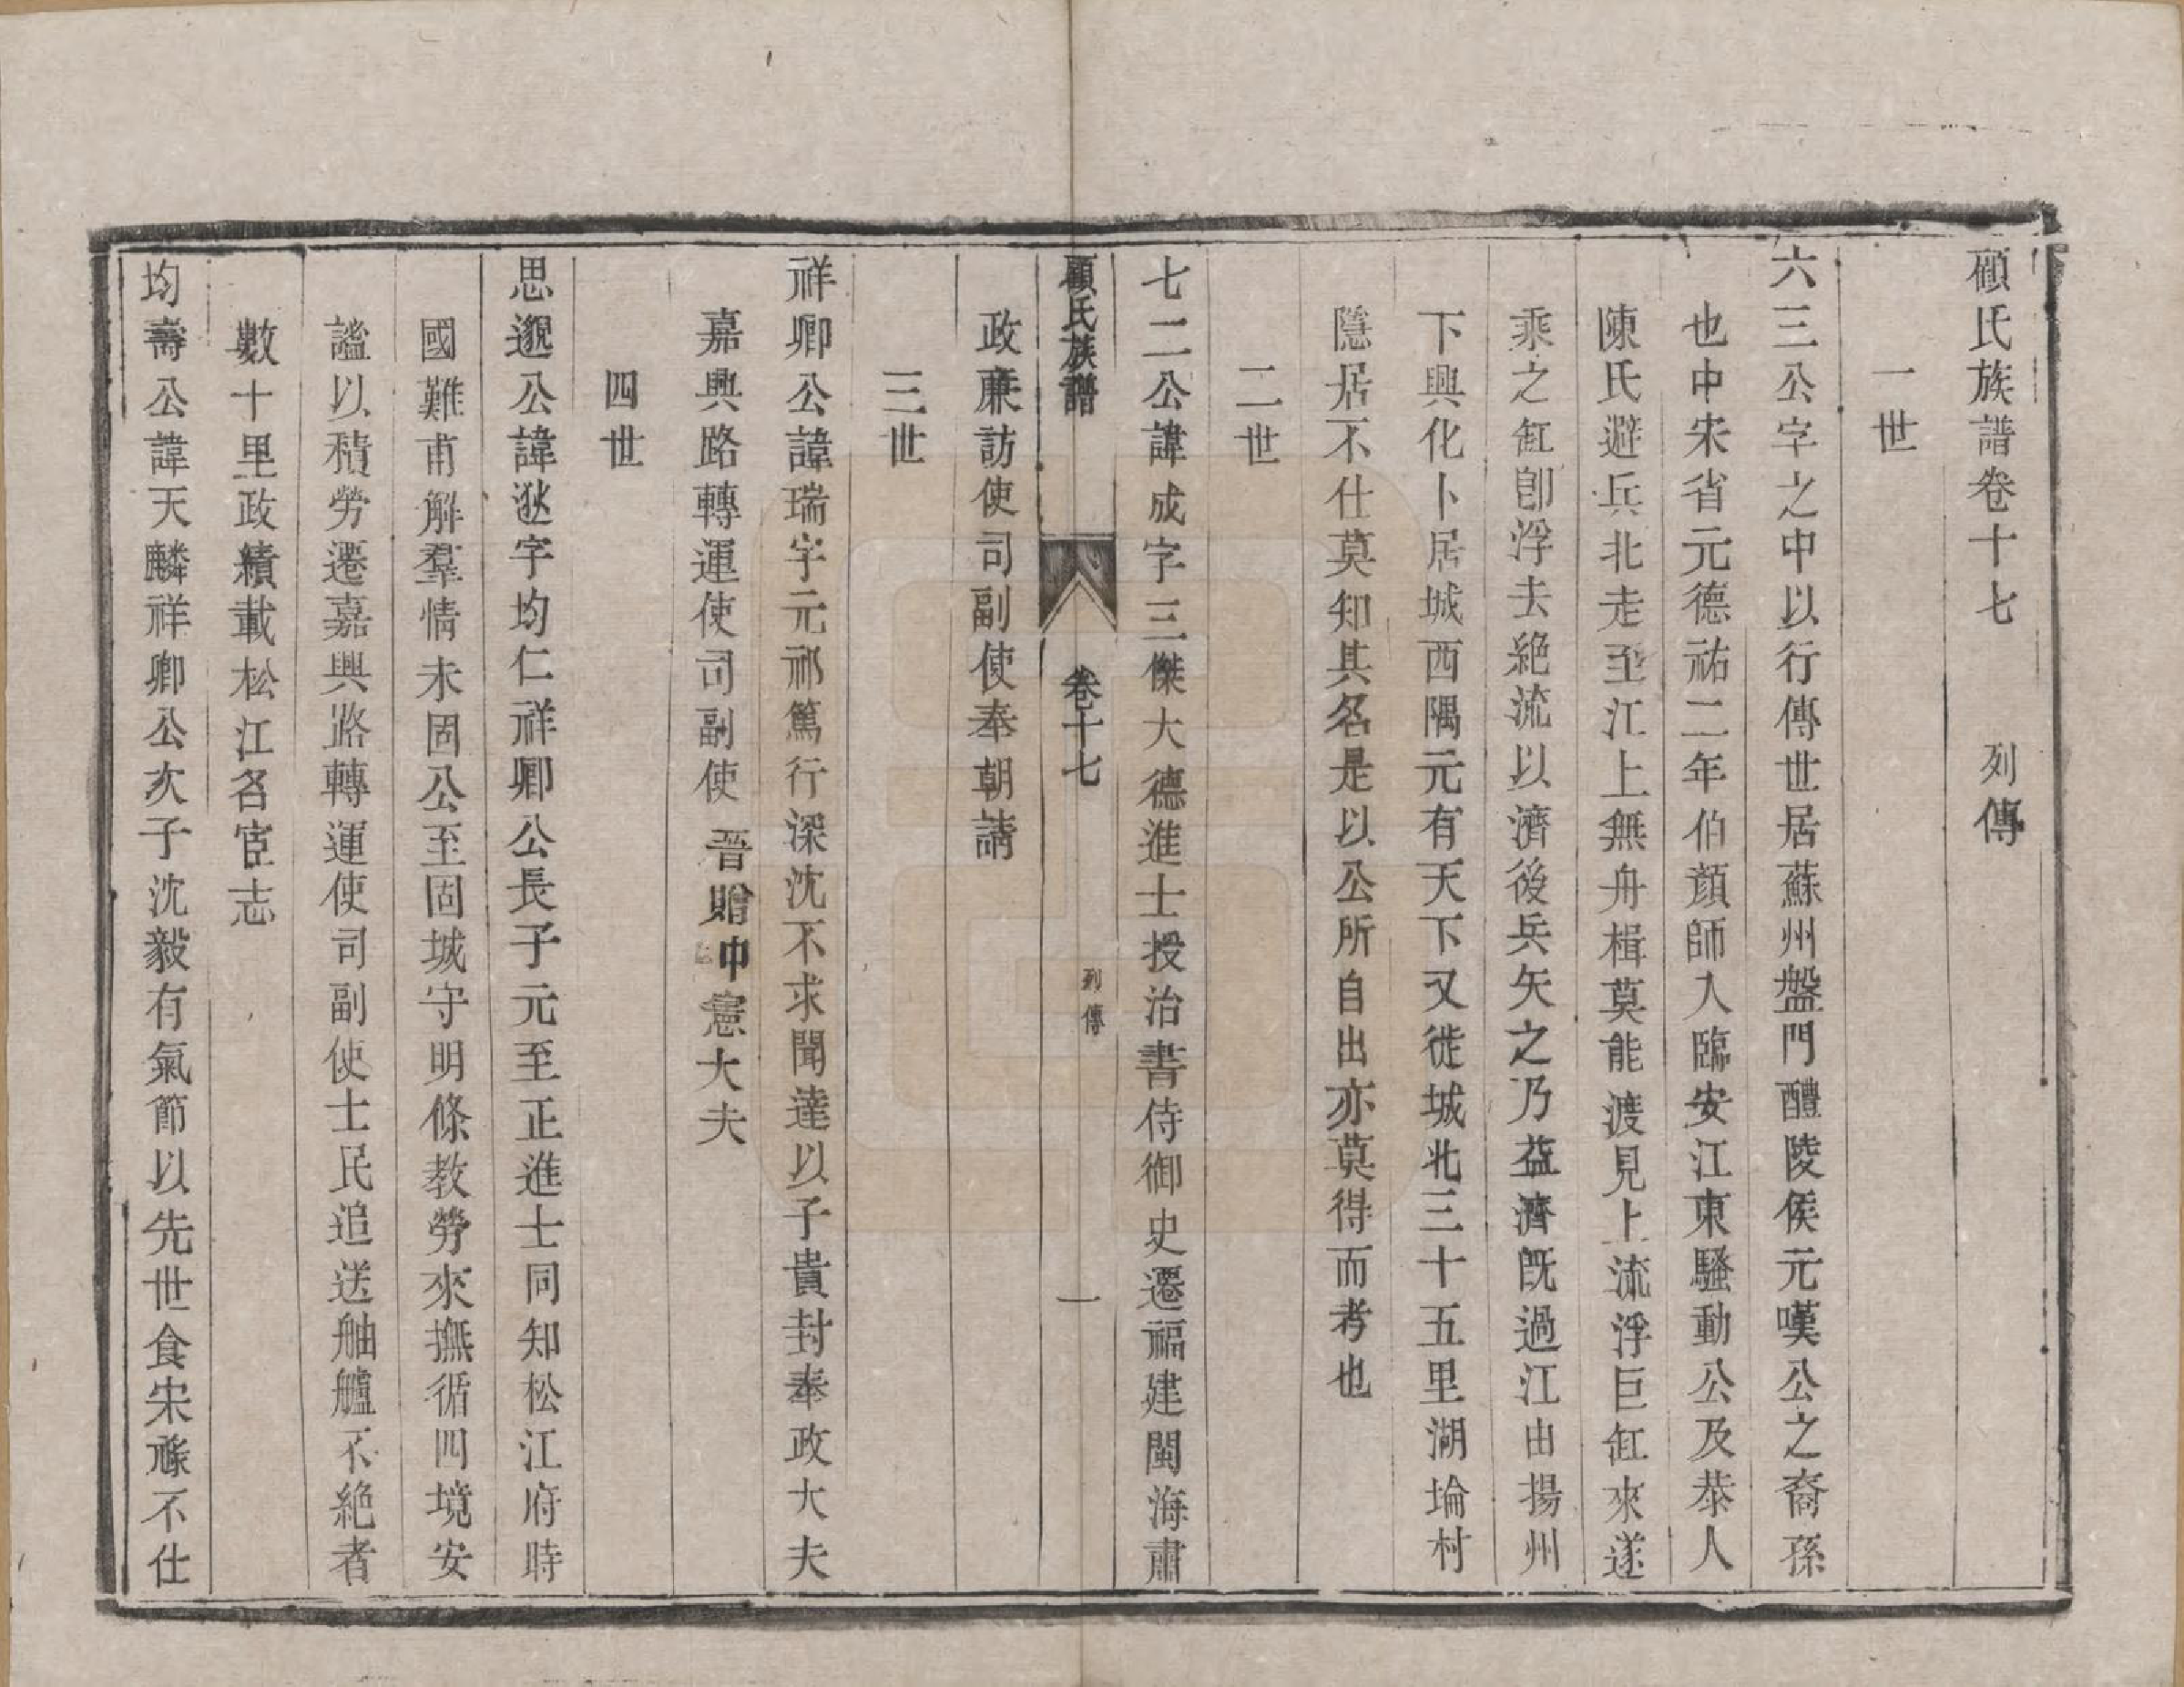 顧氏族譜卷十七　列傳
一世
六三公字之中以行傳世居蘇州盤門醴陵侯元嘆公之裔孫
也中宋省元德祐二年伯顏師入臨安江東騷動公及恭人
陳氏避兵北走至江上無舟楫莫能渡見上流浮巨缸來遂
乘之缸卽浮去絕流以濟後兵矢之乃益濟旣過江由揚州
下興化卜居城西隅元有天下又徙城北三十五里湖埨村
隱居不仕莫知其名是以公所自出亦莫得而考也
二世
七二公諱成字三傑大德進士授治書侍御史遷福建閩海肅
顧氏族譜　卷十七　列傳　一
政廉訪使司副使奉朝請
三世
祥卿公諱瑞字元祁篤行深沈不求聞達以子貴封奉政大夫
嘉興路轉運使司副使　晉贈中憲大夫
四世
思邈公諱逖字均仁祥卿公長子元至正進士同知松江府時
國難甫解羣情未固公至固城守明條教勞來撫循四境安
謐以積勞遷嘉興路轉運使司副使士民追送舳艫不絕者
數十里政績載松江名宦志
均壽公諱天麟祥卿公次子沈毅有氣節以先世食宋祿不仕